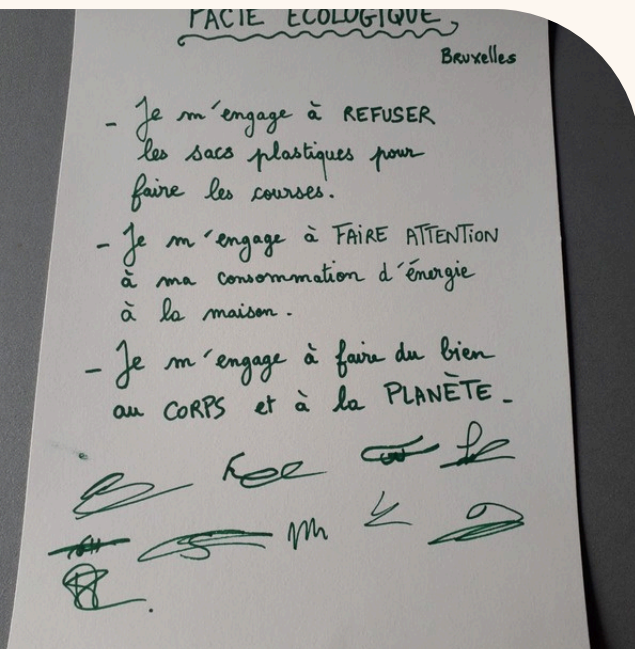 PACTE ÉCOLOGIQUE
Bruxelles
- Je m'engage à REFUSER
les sacs plastiques pour
faire les courses.
- Je m'engage à FAIRE ATTENTION
à ma consommation d'énergie
à la maison.
- Je m'engage à faire du bien
au CORPS et à la PLANÈTE.